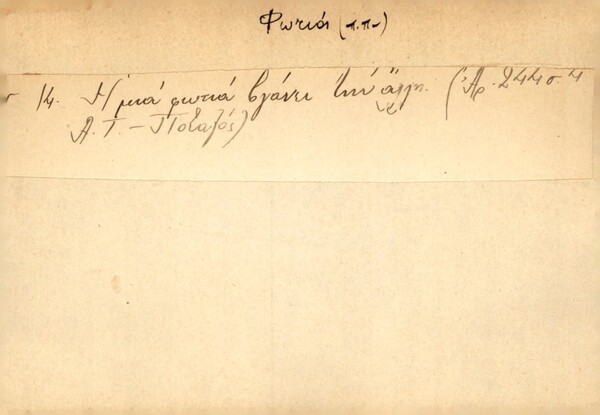 Φωτιά (π.π.)
14. Ἡ μιά φωτιά βγάνει τήν ἄλλη. (Ἀρ. 244 σ. 4
Α. Τ. – Ποταγός)